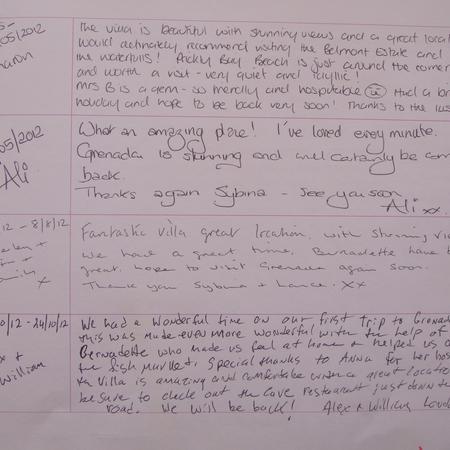 5-
05/2012
haron
The villa is beautiful with stunning views and a great local
would definately recommend visiting the Belmont Estate and
the waterfalls! Prickly Bay Beach is just around the corner
and worth a visit - very quiet and idyllic!
Mrs B is a gem - so friendly and hospitable Had a br
holiday and hope to be back very soon! Thanks to the
05/2012
Ali
What an amazing place! I've loved every minute.
Grenada is stunning and will certainly be com
back.
Thanks again Sybina - see you soon
Ali xx.
12 - 8/8/12
+
mily
x
Fantastic villa great location. with stunning vi
We have a great time. Bernadette have b
great. hope to visit Grenada again soon.
Thank you Sybina + Lance. XX
0/12 - 24/10/12
x +
William
We had a wonderful time on our first trip to Grenad
this was made even more wonderful with the help of
Bernadette who made us feel at home + helped us a
the fish market. Special thanks to Anna for her hos
the villa is amazing and comfortable with a great locatio
be sure to check out the Cove restaurant just down th
road. We will be back! Alex + William Lond